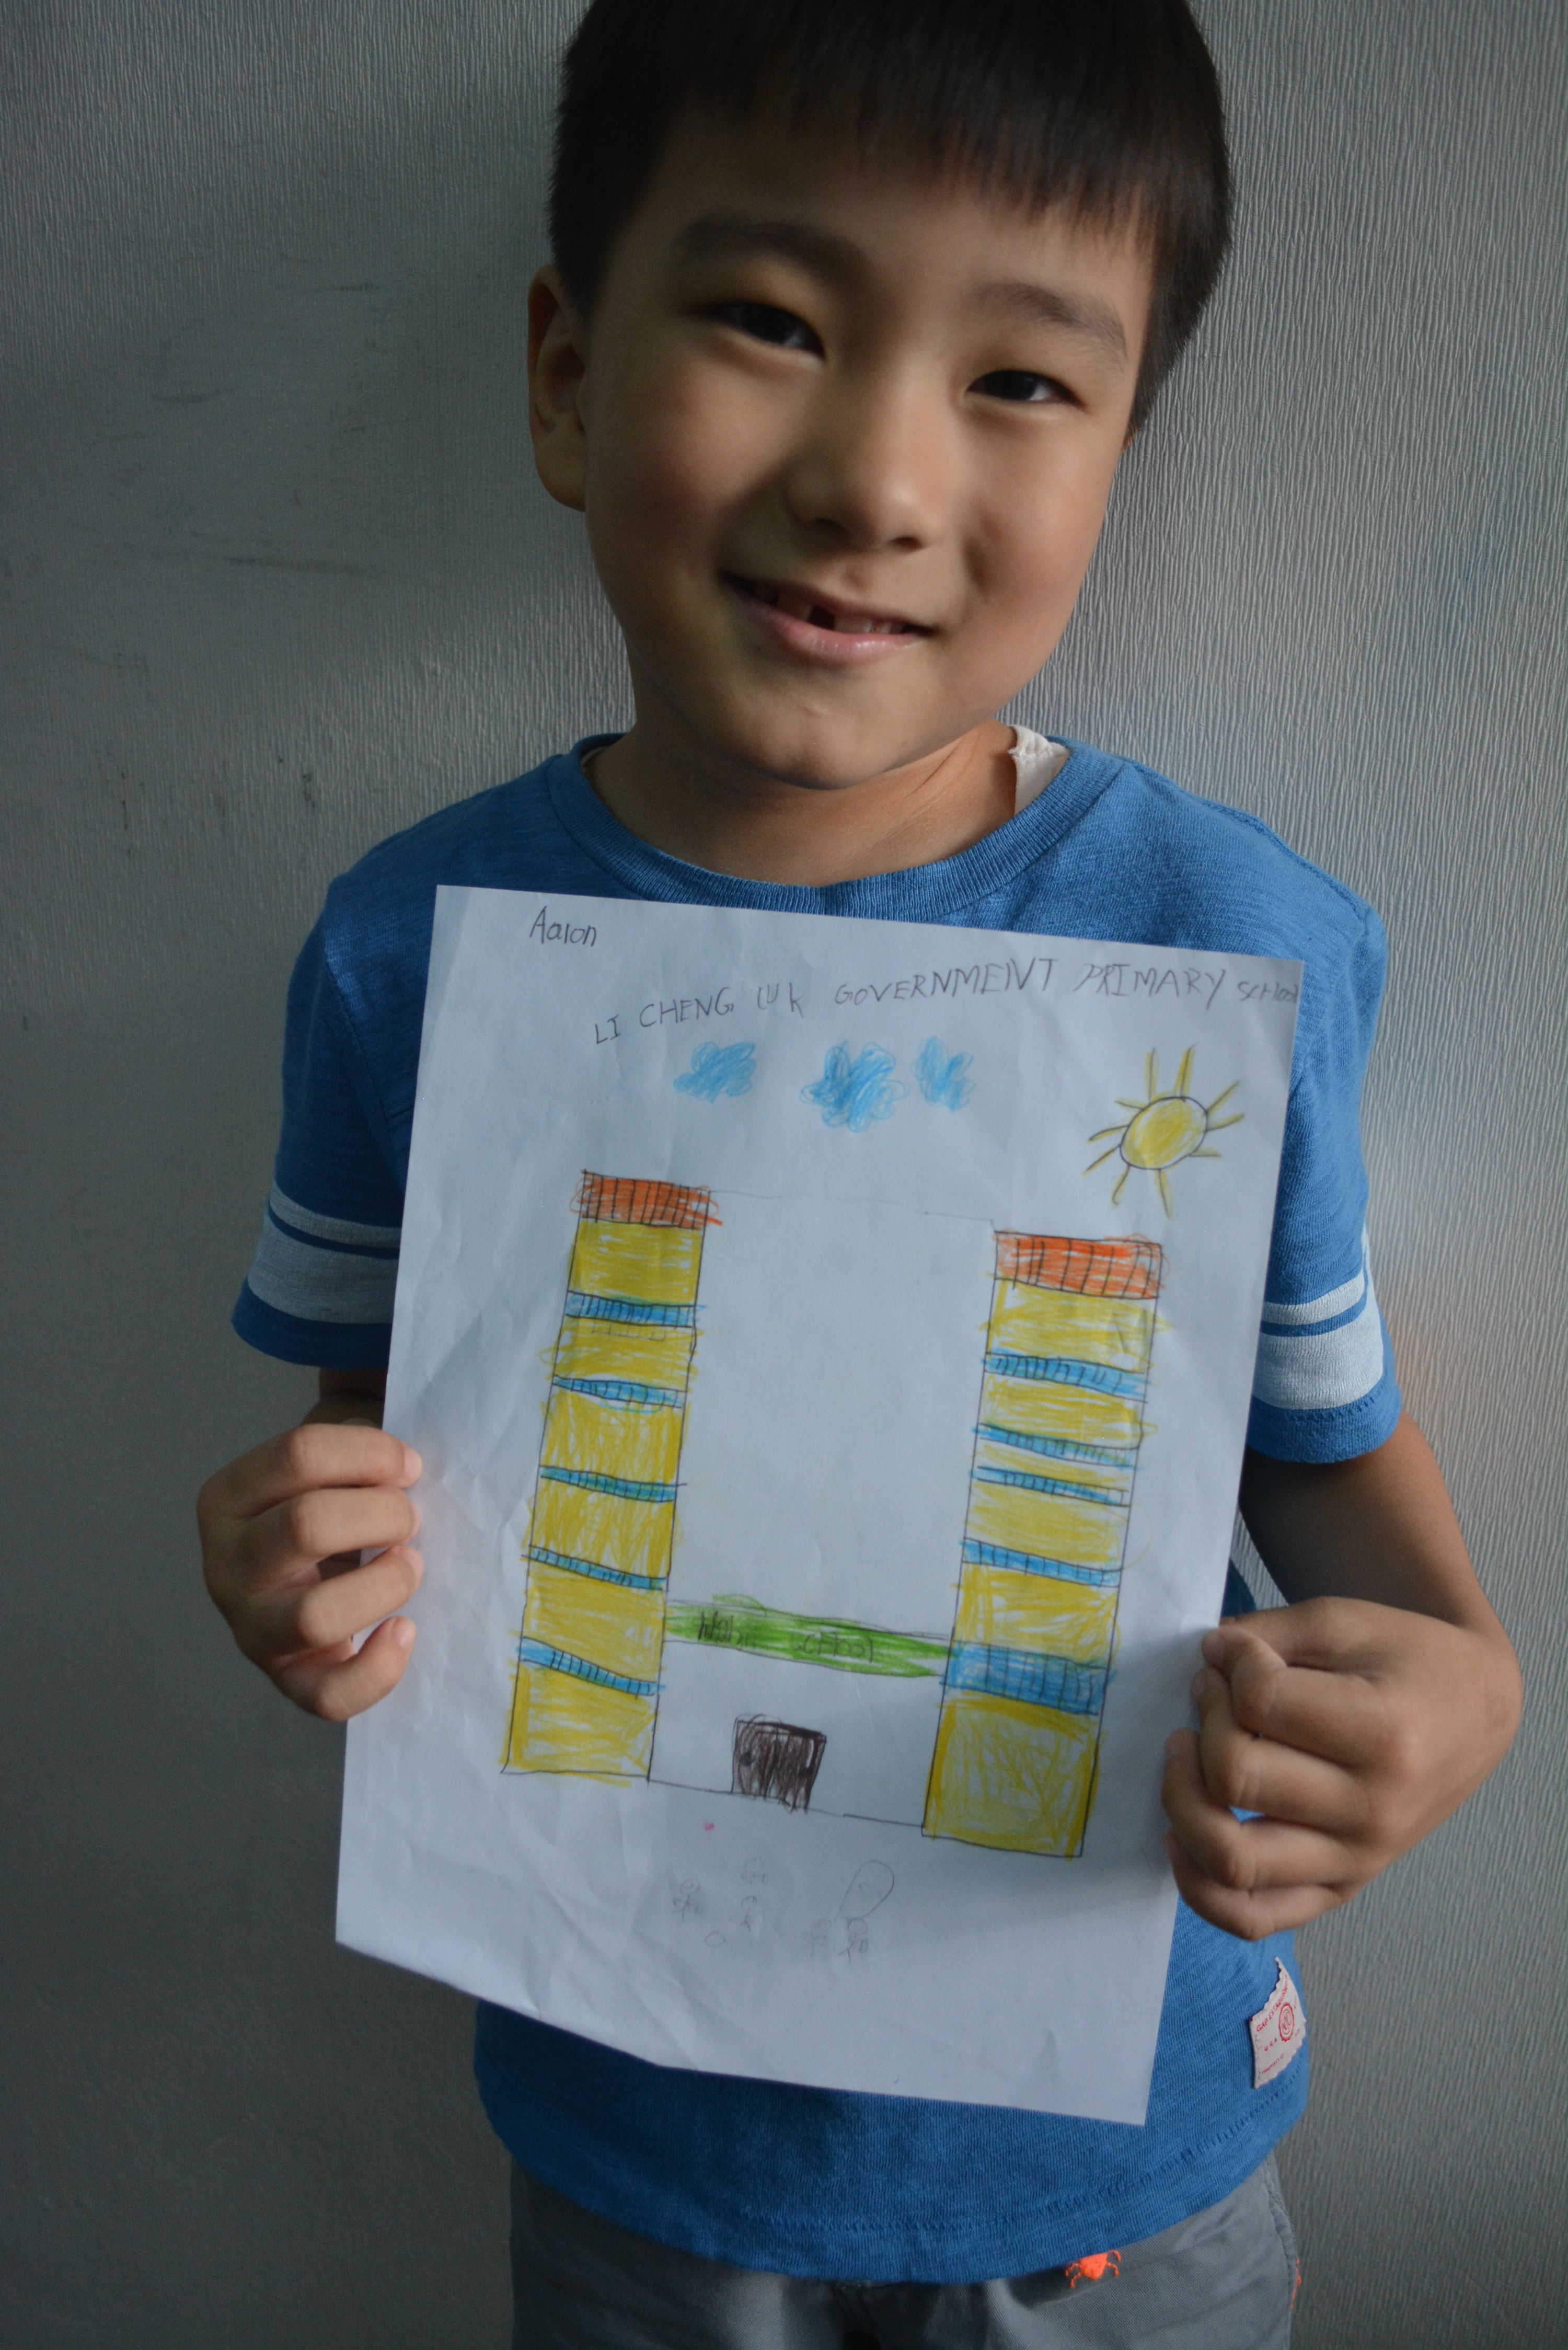 Aaron
LI CHENG LUK GOVERNMENT PRIMARY SCHOOL
SCHOOL